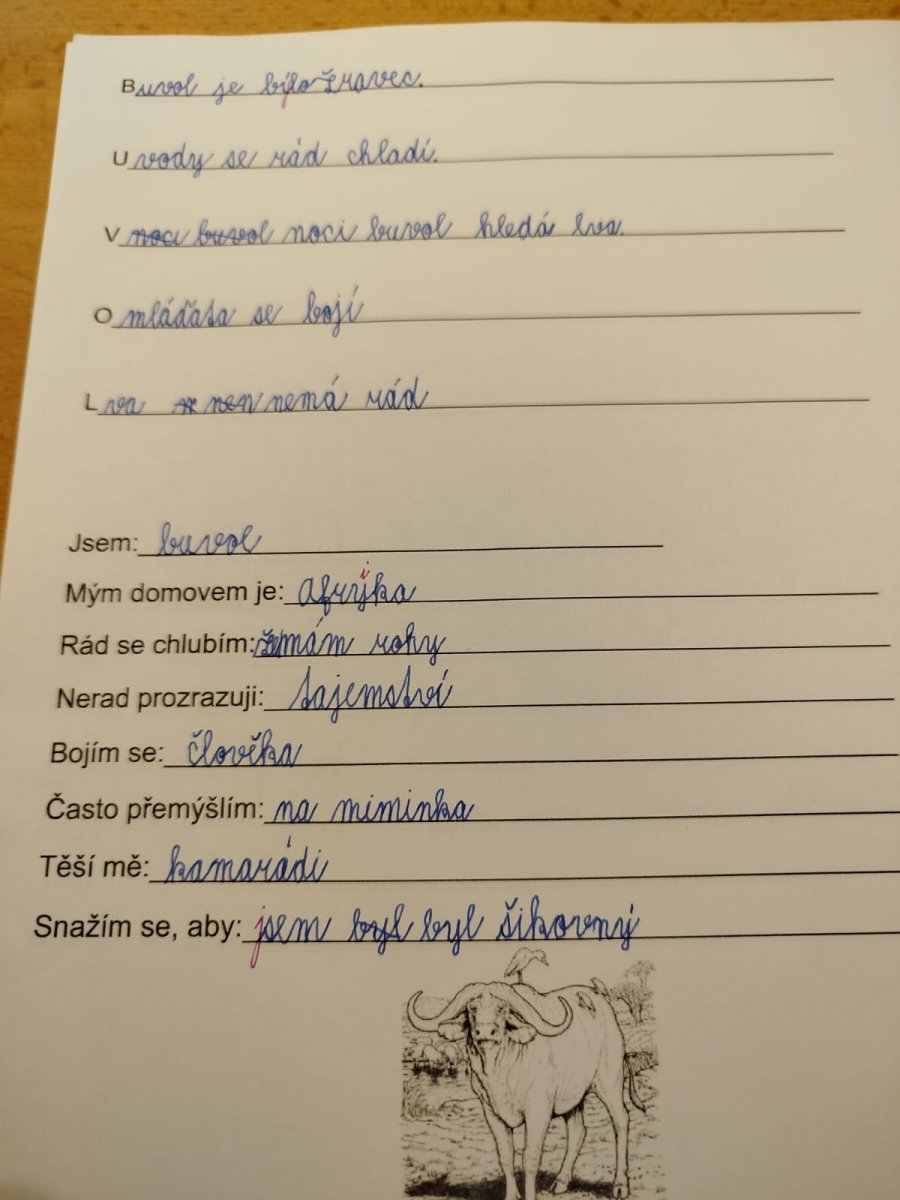 Buvol je býložravec.
U vody se rád chladí.
V noci buvol noci buvol hledá lva.
O mláďata se bojí
Lva nemá rád
Jsem: buvol
Mým domovem je: Afrika
Rád se chlubím: mám rohy
Nerad prozrazuji: tajemství
Bojím se: člověka
Často přemýšlím: na miminka
Těší mě: kamarádi
Snažím se, aby: jsem byl byl šikovný